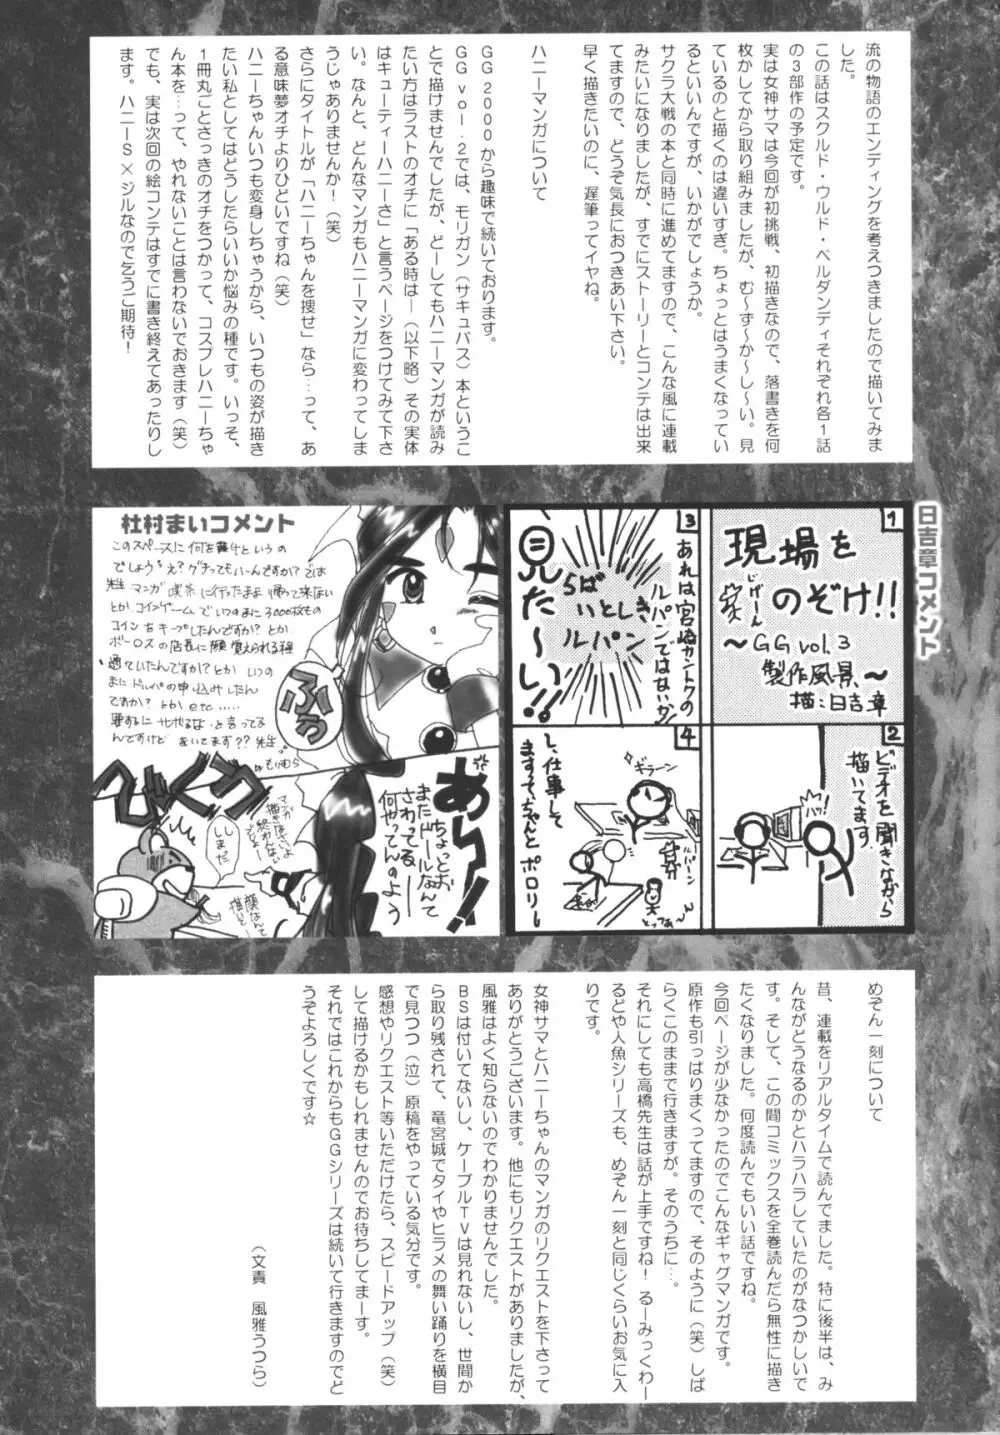 流の物語のエンディングを考えつきましたので描いてみま
した。
この話はスクルド・ウルド・ベルダンディそれぞれ各1話
の3部作の予定です。
実は女神サマは今回が初挑戦、初描きなので、落書きを何
枚かしてから取り組みましたが、む〜ず〜か〜し〜い。見
ているのと描くのは違いすぎ。ちょっとはうまくなってい
るといいんですが、いかがでしょうか。
サクラ大戦の本と同時に進めてますので、こんな風に連載
みたいになりましたが、すでにストーリーとコンテは出来
てますので、どうぞ気長におつきあい下さい。
早く描きたいのに、遅筆ってイヤね。
ハニーマンガについて
GG2000から趣味で続いております。
GGvol.2では、モリガン(サキュバス)本というこ
とで描けませんでしたが、どーしてもハニーマンガが読み
たい方はラストのオチに「ある時は―(以下略)その実体
はキューティーハニーさ」と言うページをつけてみて下さ
い。なんと、どんなマンガもハニーマンガに変わってしま
うじゃありませんか!(笑)
さらにタイトルが「ハニーちゃんを捜せ」なら…って、あ
る意味夢オチよりひどいですね(笑)
ハニーちゃんいつも変身しちゃうから、いつもの姿が描き
たい私としてはどうしたらいいか悩みの種です。いっそ、
1冊丸ごとさっきのオチをつかって、コスプレハニーちゃ
ん本を…って、やれないことは言わないでおきます(笑)
でも、実は次回の絵コンテはすでに書き終えてあったりし
ます。ハニーS×ジルなので乞うご期待!
日吉章コメント
1
現場を
のぞけ!!
〜GG vol.3
製作風景〜
描:日吉章
2
ビデオを聞きながら
描いてます。
3
あれは宮崎カントクの
ルパンではないか!
らぱ
いとしき
ルパン
見た〜い!!
4
ギラーン
ルパーン
し、仕事して
ますって、ちゃんと
ポロリ
とっつあ〜ん
杜村まいコメント
このスペースに何を書けというの
でしょうえ?グチってもいーんですか?では
先生マンガ喫茶に行ったまま帰って来ない
とかコインゲームでいつのまに3000枚もの
コインをキープしたんですか?とか
ボーロスの店長に顔覚えられる程
通っていたんですか?とかいつの
まにドルパの申し込みしたん
ですか?とかetc.....
んですけどきいてます??先生
もりむら
ふっ
びくっ
あらー!
ちょっとお
またドールなんて
さわってるー
何やってんのよう
しまだ
めぞん一刻について
昔、連載をリアルタイムで読んでました。特に後半は、み
んながどうなるのかとハラハラしていたのがなつかしいで
す。そして、この間コミックスを全巻読んだら無性に描き
たくなりました。何度読んでもいい話ですね。
今回ページが少なかったのでこんなギャグマンガです。
原作も引っぱりまくってますので、そのように(笑)しば
らくこのままで行きますが。そのうちに…。
それにしても高橋先生は話が上手ですね!るーみっくわー
るどや人魚シリーズも、めぞん一刻と同じくらいお気に入
りです。
女神サマとハニーちゃんのマンガのリクエストを下さって
ありがとうございます。他にもリクエストがありましたが、
風雅はよく知らないのでわかりませんでした。
BSは付いてないし、ケーブルTVは見れないし、世間か
ら取り残されて、竜宮城でタイやヒラメの舞い踊りを横目
で見つつ(泣)原稿をやっている気分です。
感想やリクエスト等いただけたら、スピードアップ(笑)
して描けるかもしれませんのでお待ちしてまーす。
それではこれからもGGシリーズは続いて行きますのでど
うぞよろしくです☆
(文責　風雅うつら)